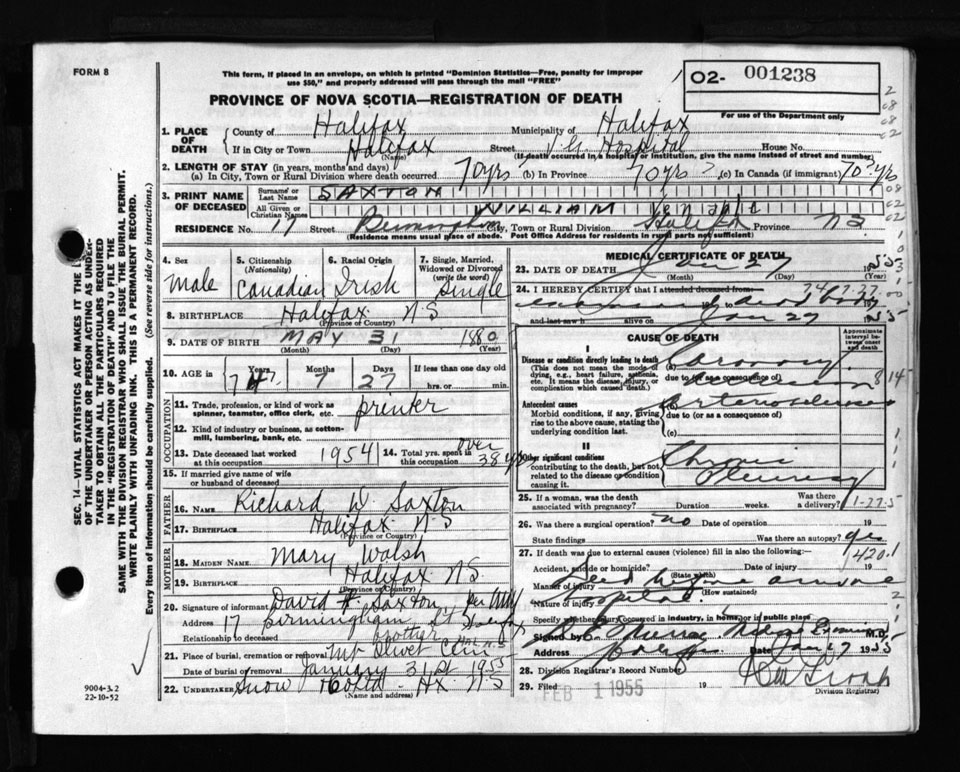 FORM 8
This form, if placed in an envelope, on which is printed "Dominion Statistics—Free, penalty for improper
use $50," and properly addressed will pass through the mail "FREE"
O2- 001238
For use of the Department only
PROVINCE OF NOVA SCOTIA—REGISTRATION OF DEATH
1. PLACE OF DEATH { County of Halifax Municipality of Halifax
If in City or Town Halifax (Name) Street V.G. Hospital House No.
(If death occurred in a hospital or institution, give the name instead of street and number)
2. LENGTH OF STAY (in years, months and days)
(a) In City, Town or Rural Division where death occurred 70 yrs (b) In Province 70 yrs (c) In Canada (if immigrant) 70 yrs
3. PRINT NAME OF DECEASED { Surname or Last Name SAXTON
All Given or Christian Names WILLIAM Venable
RESIDENCE No. 17 Street City, Town or Rural Division Halifax Province N S
(Residence means usual place of abode. Post Office Address for residents in rural parts not sufficient)
4. Sex male
5. Citizenship (Nationality) Canadian
6. Racial Origin Irish
7. Single, Married, Widowed or Divorced (write the word) Single
8. BIRTHPLACE Halifax N S
(Province or Country)
9. DATE OF BIRTH MAY 31 1880
(Month) (Day) (Year)
10. AGE in { Years 74 Months 7 Days 27 If less than one day
hrs. or min.
OCCUPATION
11. Trade, profession, or kind of work as spinner, teamster, office clerk, etc. printer
12. Kind of industry or business, as cotton-mill, lumbering, bank, etc.
13. Date deceased last worked at this occupation 1954
14. Total yrs. spent in this occupation over 38 yrs
15. If married give name of wife or husband of deceased
FATHER
16. NAME Richard W. Saxton
17. BIRTHPLACE Halifax N S
(Province or Country)
MOTHER
18. MAIDEN NAME Mary Walsh
19. BIRTHPLACE Halifax N S
(Province or Country)
20. Signature of informant David F. Saxton per
Address 17 Birmingham St Halifax
Relationship to deceased brother
21. Place of burial, cremation or removal Mt Olivet Cem
Date of burial or removal January 31st 1955
22. UNDERTAKER Snow Hx N S
(Name and address)
MEDICAL CERTIFICATE OF DEATH
23. DATE OF DEATH Jan 27 1955
(Month) (Day) (Year)
24. I HEREBY CERTIFY that I attended deceased from
and last saw h alive on Jan 27 1955
CAUSE OF DEATH
Approximate interval between onset and death
I
Disease or condition directly leading to death (a) Coronary
(This does not mean the mode of dying, e.g., heart failure, asthenia, etc. It means the disease, injury, or complication which caused death.)
due to (or as a consequence of)
Antecedent causes
Morbid conditions, if any, giving rise to the above cause, stating the underlying condition last.
(b) Arteriosclerosis
due to (or as a consequence of)
(c)
II
Other significant conditions
contributing to the death, but not related to the disease or condition causing it.
Chronic Pleurisy
25. If a woman, was the death associated with pregnancy? Duration weeks. Was there a delivery?
26. Was there a surgical operation? no Date of operation 19
State findings Was there an autopsy? yes
27. If death was due to external causes (violence) fill in also the following:
420.1
Accident, suicide or homicide? Date of injury 19
(State which)
Manner of injury Dead before arrival
(How sustained)
Nature of injury hospital
Specify whether injury occurred in industry, in home, or in public places
Signed by M.D.
Address Halifax Date Jan 27 1955
28. Division Registrar's Record Number
29. Filed FEB 1 1955 19
Division Registrar)
SEC. 14—VITAL STATISTICS ACT MAKES IT THE
OF THE UNDERTAKER OR PERSON ACTING AS UNDER-
TAKER TO OBTAIN ALL THE PARTICULARS REQUIRED
IN THE "REGISTRATION OF DEATH" AND TO FILE THE
SAME WITH THE DIVISION REGISTRAR WHO SHALL ISSUE THE BURIAL PERMIT.
WRITE PLAINLY WITH UNFADING INK. THIS IS A PERMANENT RECORD.
Every item of information should be carefully supplied. (See reverse side for instructions.)
9004-3.2
22-10-52